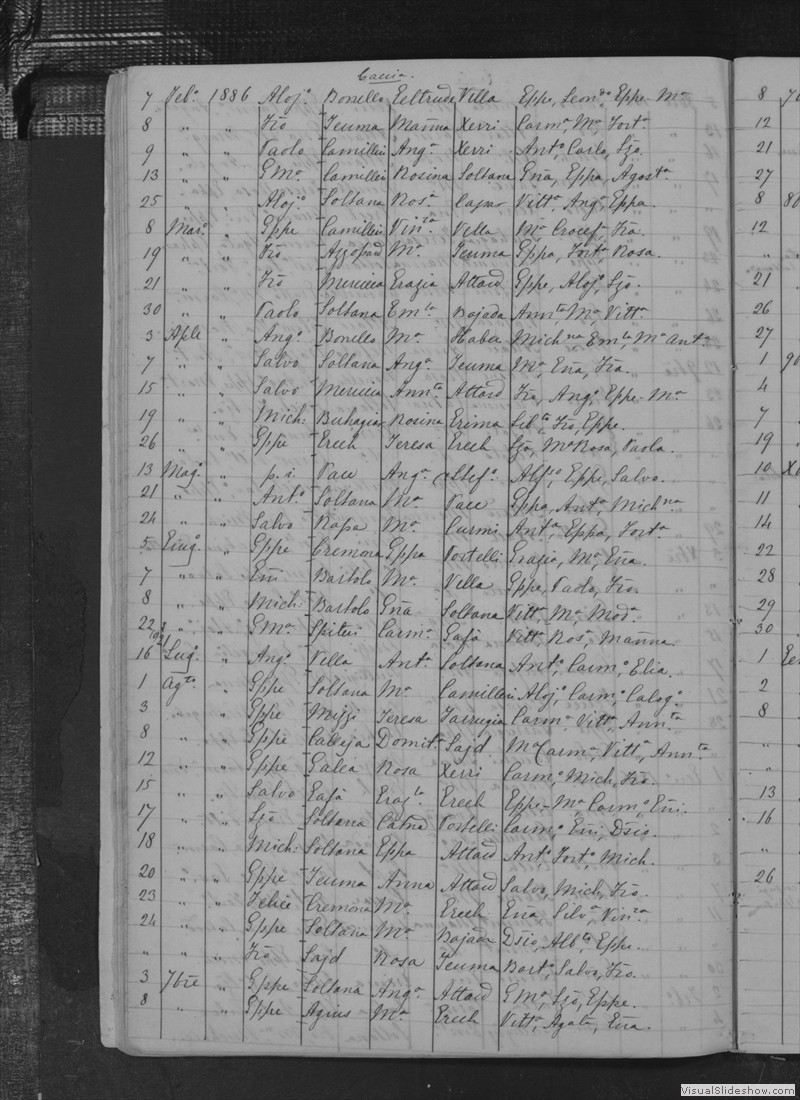 Caccia.
7 Feb.º 1886 Aloj.º Bonello Eeltrude Villa Eppe, Leon.do Eppe-M.a
8 " " Frõ Teuma Mañna Xerri Carm.a, M.a, Fort.a
9 " " Paolo Camilleri Ang.a Xerri Ant.º, Carlo, Sjõ.
13 " " G.M.a Camilleri Rosina Soltana Ena, Eppa, Agost.a
25 " " Aloj.º Soltana Ros.a Capar Vitt.a Ang.a Eppa.
8 Mar.º " Gppe Camilleri Vin.ta Villa M.a Crocef.a Frã.
19 " " Frõ Azzopard M.a Teuma Eppa, Fort.a Rosa.
21 " " Frõ Merciecia Erazia Attard Gppe, Aloj.º, Sjõ.
30 " " Paolo Soltana Em.la Bajada Ann.ta M.a, Vitt.a
3 Aple " Ang.º Bonello M.a Haber Mich.na, Em.la M.a Ant.a
7 " " Salvo Soltana Ang.a Teuma M.a Eña, Frã.
15 " " Salvo Merciecia Ann.ta Attard Frã, Ang.º, Eppe-M.a
19 " " Mich: Buhagiar Rosina Erima Seb.ta, Frõ, Eppe.
26 " " Gppe Erech Teresa Erech Sjõ, M.a Rosa, Paola.
13 Mag.º " p. i. Pace Ang.a Stef.º Alf.so, Eppe, Salvo.
21 " " Ant.º Soltana M.a Pace Gppa, Ant.a, Mich.na
24 " " Salvo Rapa M.a Curmi Ant.a, Eppa, Fort.a
5 Eiug.º " Gppe Cremona Gppa Portelli Grazia, M.a, Eña.
7 " " Eñi Bartolo M.a Vella Gppe, Paolo, Frõ.
8 " " Mich: Bartolo Gña Soltana Vitt.a, M.a, Mod.a
22 " " G.M.a Spiteri Carm.a Gafà Vitt.a, Ros.a, Mañna.
16 Lug.º " Ang.º Villa Ant.a Soltana Ant.º, Carm.º, Elia.
1 Ag.to " Gppe Soltana M.a Camilleri Aloj.º, Carm.º, Calog.º
3 " " Gppe Mizzi Teresa Farrugia Carm.a, Vitt.a, Ann.ta
8 " " Gppe Calleja Domit.a Sajd M.a Carm.a, Vitt.a, Ann.ta
12 " " Gppe Galea Rosa Xerri Carm.º, Mich, Frõ.
15 " " Salvo Eafà Eraz.la Erech Eppe-M.a, Carm.º, Eñi.
17 " " Sjõ Soltana Catña Portelli Carm.º, Eñi, Dsio.
18 " " Mich: Soltana Eppa Attard Ant.º, Fort.º, Mich.
20 " " Gppe Teuma Anna Attard Salvo, Mich, Frõ.
23 " " Felice Cremona M.a Erech Ena, Silv.a, Vin.za
24 " " Gppe Soltana M.a Bajada Dsio, Alb.ta, Eppe.
" " " Frõ Sajd Rosa Teuma Bort.º, Salvo, Frõ.
3 7bre " Gppe Soltana Ang.a Attard G.M.a, Sjõ, Eppe.
8 " " Gppe Agius M.a Erech Vitt.a, Agata, Eña.
8
12
21
27
8
12
"
21
26
27
1
4
7
19
10
11
14
22
28
29
30
1
2
8
"
"
13
16
"
26
VisualSlideshow.com